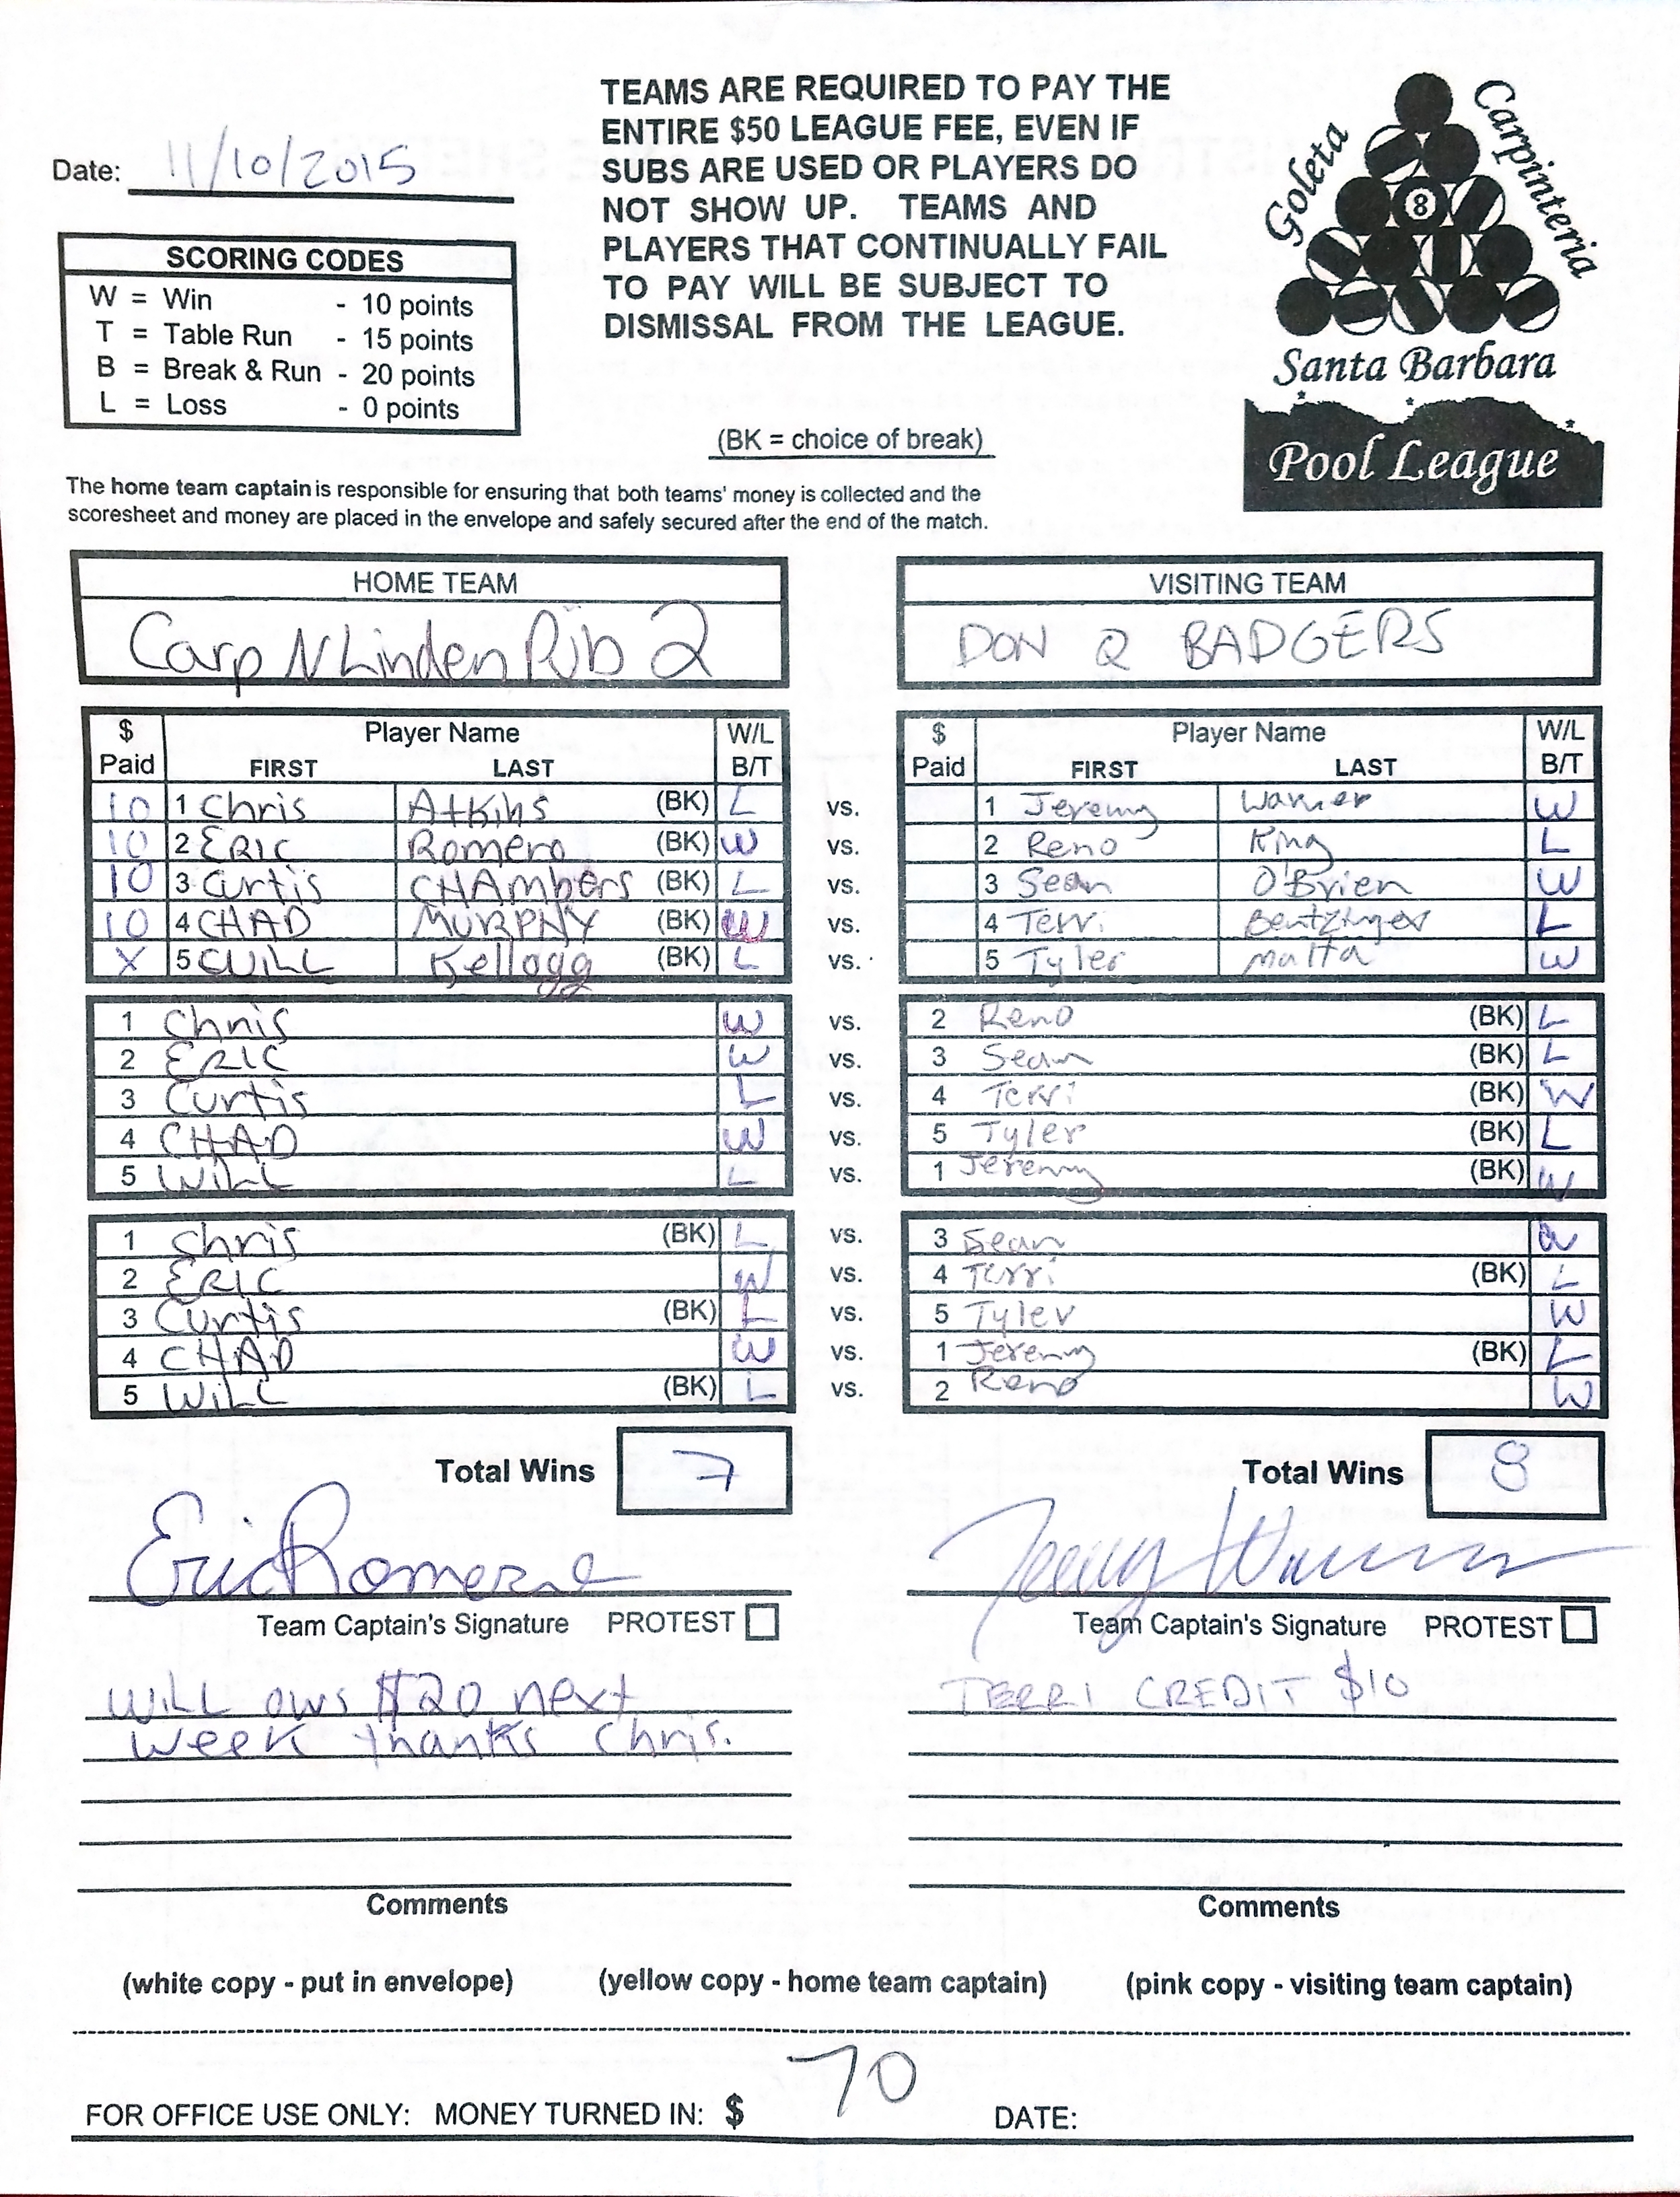 TEAMS ARE REQUIRED TO PAY THE
ENTIRE $50 LEAGUE FEE, EVEN IF
SUBS ARE USED OR PLAYERS DO
NOT SHOW UP. TEAMS AND
PLAYERS THAT CONTINUALLY FAIL
TO PAY WILL BE SUBJECT TO
DISMISSAL FROM THE LEAGUE.
Date: 11/10/2015
SCORING CODES
W = Win - 10 points
T = Table Run - 15 points
B = Break & Run - 20 points
L = Loss - 0 points
(BK = choice of break)
Goleta
Carpinteria
8
Santa Barbara
Pool League
The home team captain is responsible for ensuring that both teams' money is collected and the
scoresheet and money are placed in the envelope and safely secured after the end of the match.
HOME TEAM VISITING TEAM
Carp N Linden Pub 2 DON Q BADGERS
$ Player Name W/L $ Player Name W/L
Paid FIRST LAST B/T Paid FIRST LAST B/T
10 1 Chris Atkins (BK) L vs. 1 Jeremy Warner W
10 2 ERIC Romero (BK) W vs. 2 Reno King L
10 3 Curtis CHAmbers (BK) L vs. 3 Sean O'Brien W
10 4 CHAD MURPHY (BK) W vs. 4 Terri Bentzinger L
X 5 WILL Kellogg (BK) L vs. 5 Tyler Malta W
1 Chris W vs. 2 Reno (BK) L
2 ERIC W vs. 3 Sean (BK) L
3 Curtis L vs. 4 Terri (BK) W
4 CHAD W vs. 5 Tyler (BK) L
5 WILL L vs. 1 Jeremy (BK) W
1 Chris (BK) L vs. 3 Sean W
2 ERIC W vs. 4 Terri (BK) L
3 Curtis (BK) L vs. 5 Tyler W
4 CHAD W vs. 1 Jeremy (BK) L
5 WILL (BK) L vs. 2 Reno W
Total Wins 7 Total Wins 8
Eric Romero Jeremy Warner
Team Captain's Signature PROTEST Team Captain's Signature PROTEST
WILL ows $20 next TERRI CREDIT $10
week thanks Chris.
Comments Comments
(white copy - put in envelope) (yellow copy - home team captain) (pink copy - visiting team captain)
FOR OFFICE USE ONLY: MONEY TURNED IN: $ 70 DATE: